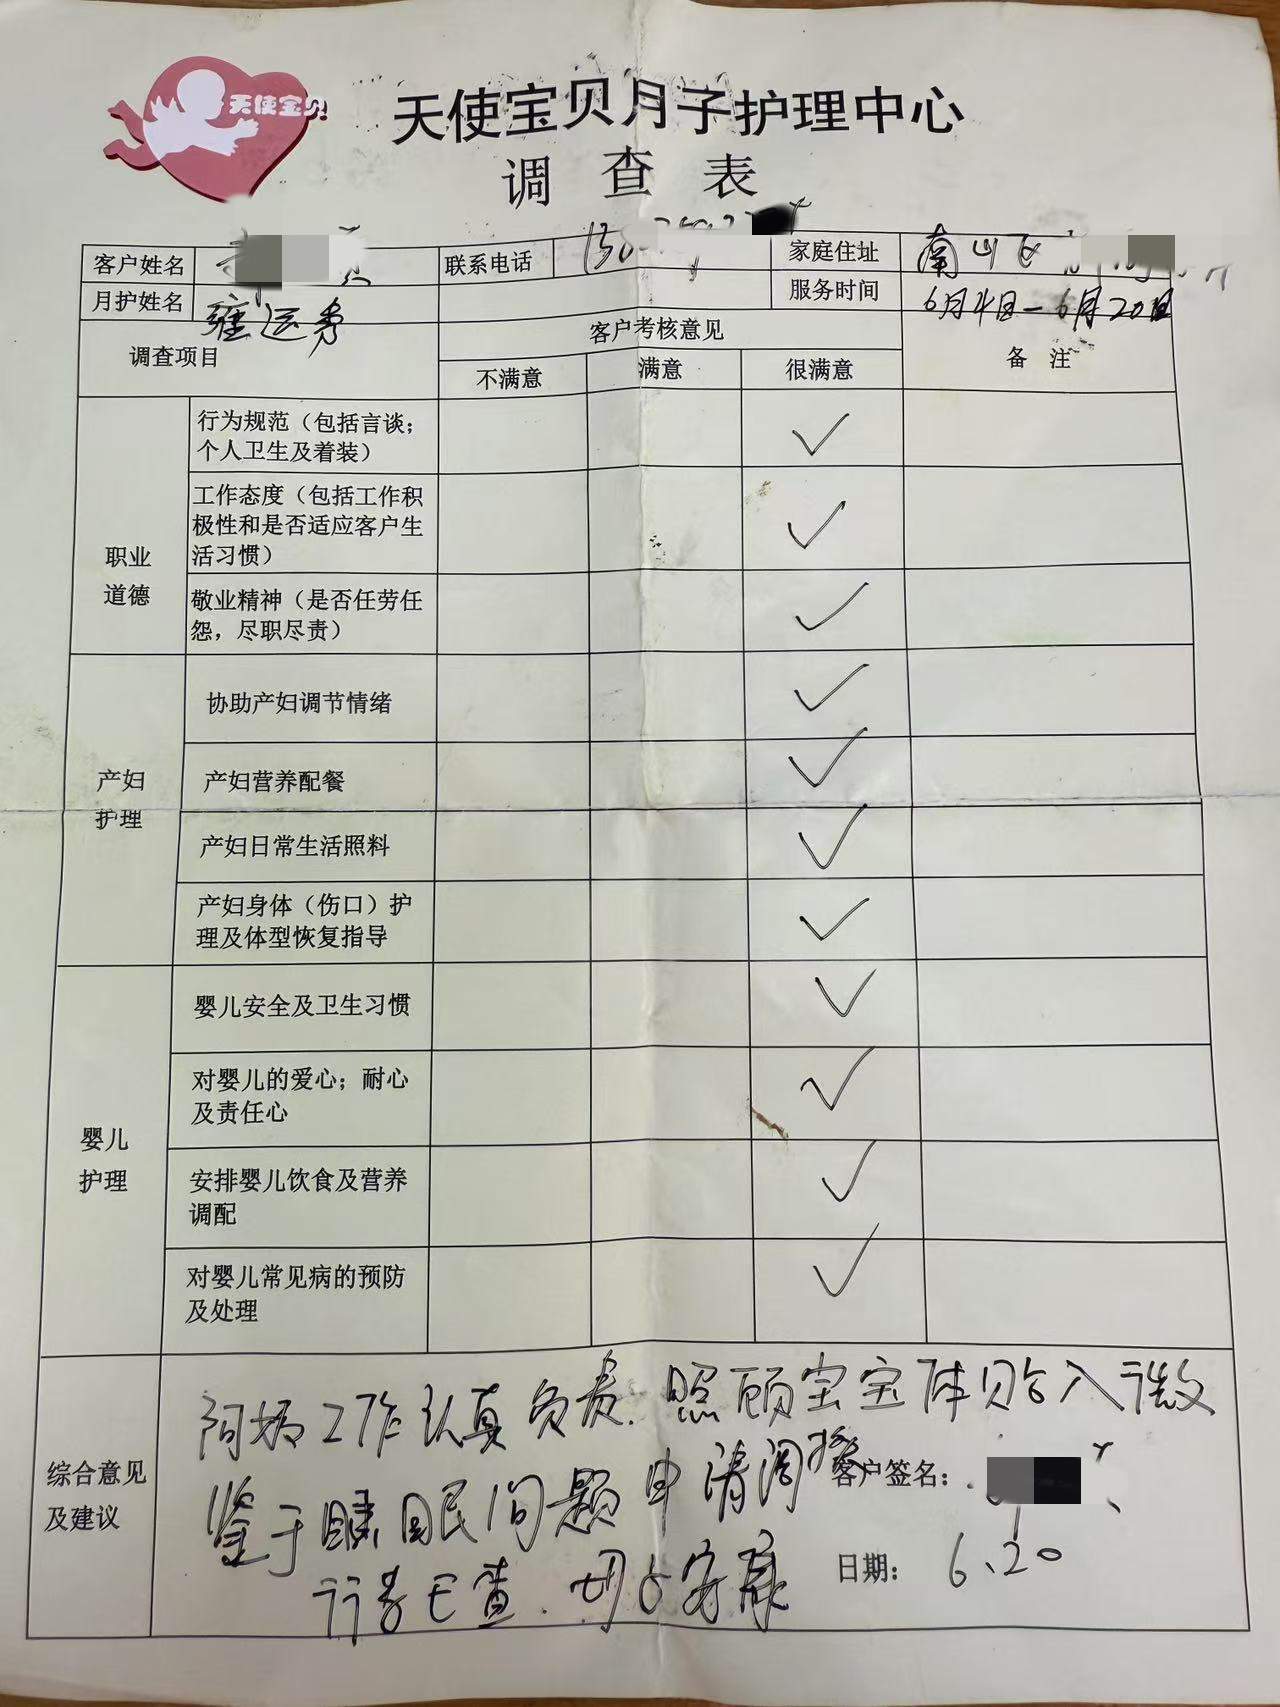 天使宝贝
天使宝贝月子护理中心
调查表
客户姓名 联系电话 家庭住址 南山区
月护姓名 运秀 服务时间 6月4日-6月20日
调查项目 客户考核意见 备 注
不满意 满意 很满意
职业
道德
行为规范（包括言谈；
个人卫生及着装） ✓
工作态度（包括工作积
极性和是否适应客户生
活习惯） ✓
敬业精神（是否任劳任
怨，尽职尽责） ✓
产妇
护理
协助产妇调节情绪 ✓
产妇营养配餐 ✓
产妇日常生活照料 ✓
产妇身体（伤口）护
理及体型恢复指导 ✓
婴儿
护理
婴儿安全及卫生习惯 ✓
对婴儿的爱心；耐心
及责任心 ✓
安排婴儿饮食及营养
调配 ✓
对婴儿常见病的预防
及处理 ✓
综合意见
及建议
阿姨工作认真负责.照顾宝宝体贴入微
鉴于睡眠问题申请调换
客户签名：
日期： 6.20